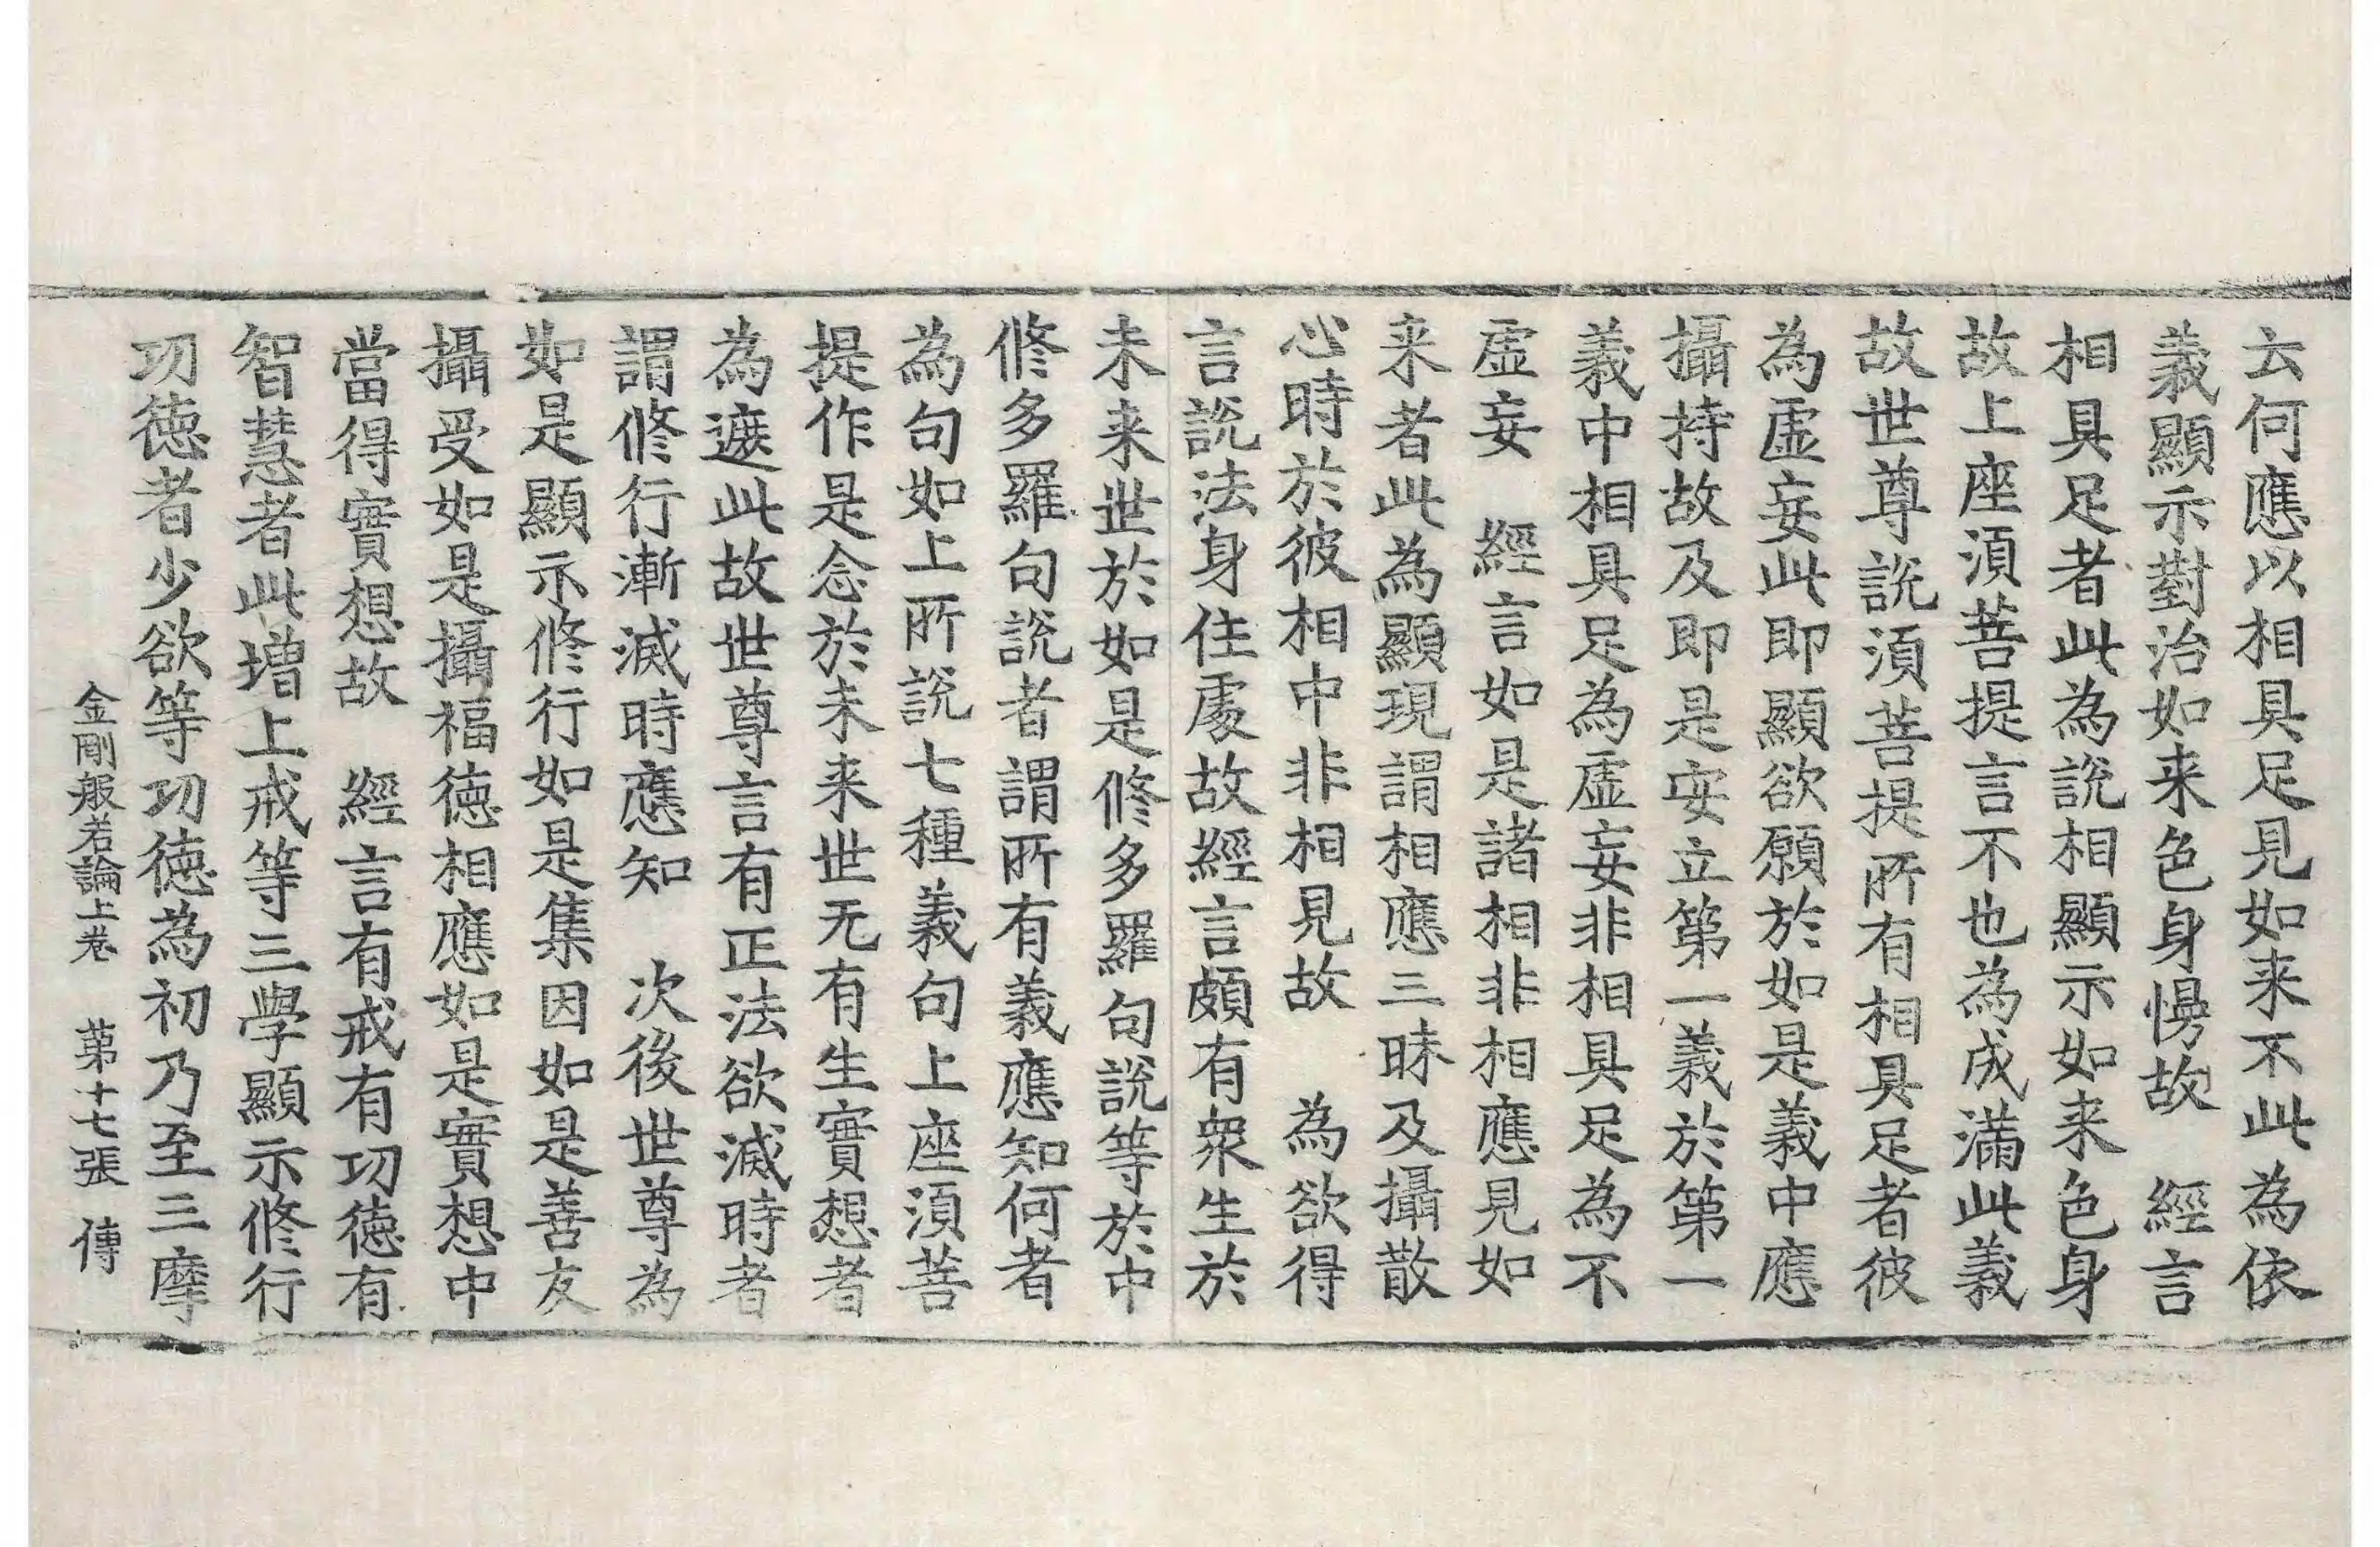 云何應以相具足見如来不此為依
義顯示對治如来色身慢故　經言
相具足者此為說相顯示如来色身
故上座湏菩提言不也為成滿此義
故世尊說湏菩提所有相具足者彼
為虛妄此即顯欲願於如是義中應
攝持故及即是安立第一義於第一
義中相具足為虛妄非相具足為不
虛妄　經言如是諸相非相應見如
来者此為顯現謂相應三昧及攝散
心時於彼相中非相見故　為欲得
言說法身住處故經言頗有衆生於
未来世於如是修多羅句說等於中
修多羅句說者謂所有義應知何者
為句如上所說七種義句上座湏菩
提作是念於未来世无有生實想者
為遮此故世尊言有正法欲滅時者
謂修行漸滅時應知　次後世尊為
如是顯示修行如是集因如是善友
攝受如是攝福德相應如是實想中
當得實想故　經言有戒有功德有
智慧者此增上戒等三學顯示修行
功德者少欲等功德為初乃至三摩
金剛般若論上卷　第十七張　傳